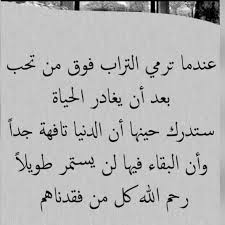 عندما ترمي التراب فوق من تحب
بعد أن يغادر الحياة
ستدرك حينها أن الدنيا تافهة جداً
وأن البقاء فيها لن يستمر طويلاً
رحم الله كل من فقدناهم